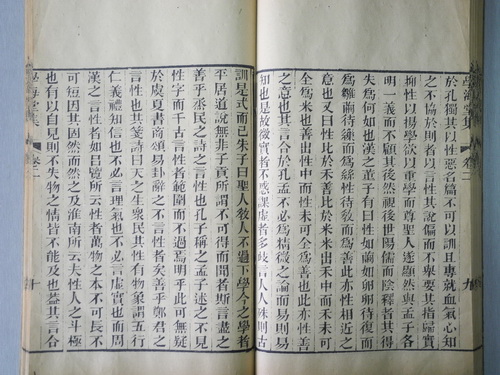 學海堂集 卷二 九
於孔獨其以性惡名篇不可以訓且專就血氣心知
之不協於則者以言性其說偏而不舉要其指歸實
抑性以揚學欲以重學而尊聖人遂顯然與孟子各
明一義而不顧其後然視後世陽儒而陰釋者其得
失爲何如也漢之董子有曰性如繭如卵卵待復而
爲雛繭待繅而爲絲性待敎而爲善此亦性相近之
意也又曰性比於禾善比於米米出禾中而禾未可
全爲米也善出性中而性未可全爲善也此亦性善
之意也其言合於孔孟不必爲精微之論而易則易
知也是故徵實者不惑課虛者多歧言人人殊則古
訓是式而已朱子曰聖人敎人不過下學今之學者
平居道說無非子貢所謂不可得而聞者斯言盡之
善乎烝民之詩之言性也孔子稱之孟子述之不見
性字而千古言性者範圍而不過焉明乎此可無疑
於虞夏書商頌易卦辭之不言性者矣善乎鄭君之
言性也其箋詩曰天之生衆民其性有物象謂五行
仁義禮知信也不必言理氣也不必言虛實也而兩
漢之言性者如呂覽所云性者萬物之本不可長不
可短因其固然而然之及淮南所云夫性人之斗極
也有以自見則不失物之情皆不能及也蓋其言合
學海堂集 卷二 十